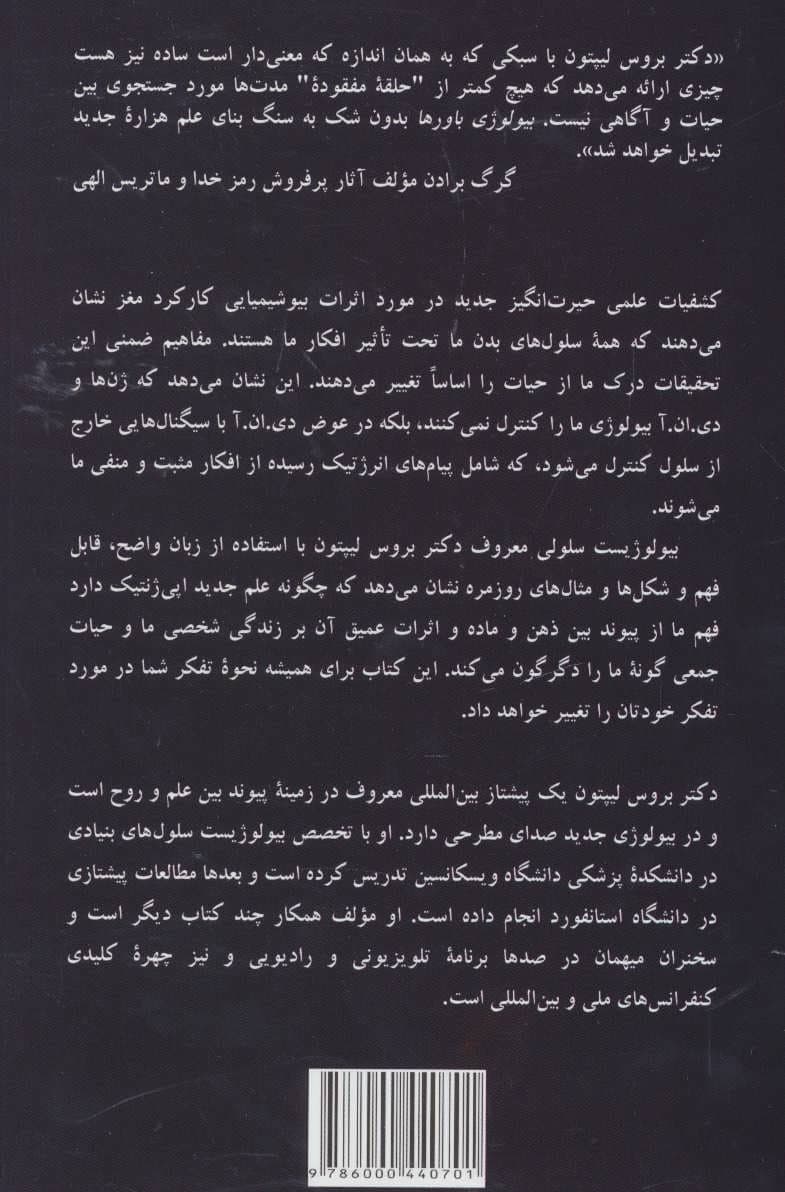 «دکتر بروس لیپتون با سبکی که به همان اندازه که معنی‌دار است ساده نیز هست
چیزی ارائه می‌دهد که هیچ کمتر از "حلقهٔ مفقودهٔ" مدت‌ها مورد جستجوی بین
حیات و آگاهی نیست. بیولوژی باورها بدون شک به سنگ بنای علم هزارهٔ جدید
تبدیل خواهد شد».
گرگ برادن مؤلف آثار پرفروش رمز خدا و ماتریس الهی
کشفیات علمی حیرت‌انگیز جدید در مورد اثرات بیوشیمیایی کارکرد مغز نشان
می‌دهند که همهٔ سلول‌های بدن ما تحت تأثیر افکار ما هستند. مفاهیم ضمنی این
تحقیقات درک ما از حیات را اساساً تغییر می‌دهند. این نشان می‌دهد که ژن‌ها و
دی.ان.آ بیولوژی ما را کنترل نمی‌کنند، بلکه در عوض دی.ان.آ با سیگنال‌هایی خارج
از سلول کنترل می‌شود، که شامل پیام‌های انرژتیک رسیده از افکار مثبت و منفی ما
می‌شوند.
بیولوژیست سلولی معروف دکتر بروس لیپتون با استفاده از زبان واضح، قابل
فهم و شکل‌ها و مثال‌های روزمره نشان می‌دهد که چگونه علم جدید اپی‌ژنتیک دارد
فهم ما از پیوند بین ذهن و ماده و اثرات عمیق آن بر زندگی شخصی ما و حیات
جمعی گونهٔ ما را دگرگون می‌کند. این کتاب برای همیشه نحوهٔ تفکر شما در مورد
تفکر خودتان را تغییر خواهد داد.
دکتر بروس لیپتون یک پیشتاز بین‌المللی معروف در زمینهٔ پیوند بین علم و روح است
و در بیولوژی جدید صدای مطرحی دارد. او با تخصص بیولوژیست سلول‌های بنیادی
در دانشکدهٔ پزشکی دانشگاه ویسکانسین تدریس کرده است و بعدها مطالعات پیشتازی
در دانشگاه استانفورد انجام داده است. او مؤلف همکار چند کتاب دیگر است و
سخنران میهمان در صدها برنامهٔ تلویزیونی و رادیویی و نیز چهرهٔ کلیدی
کنفرانس‌های ملی و بین‌المللی است.
9 786000 440701